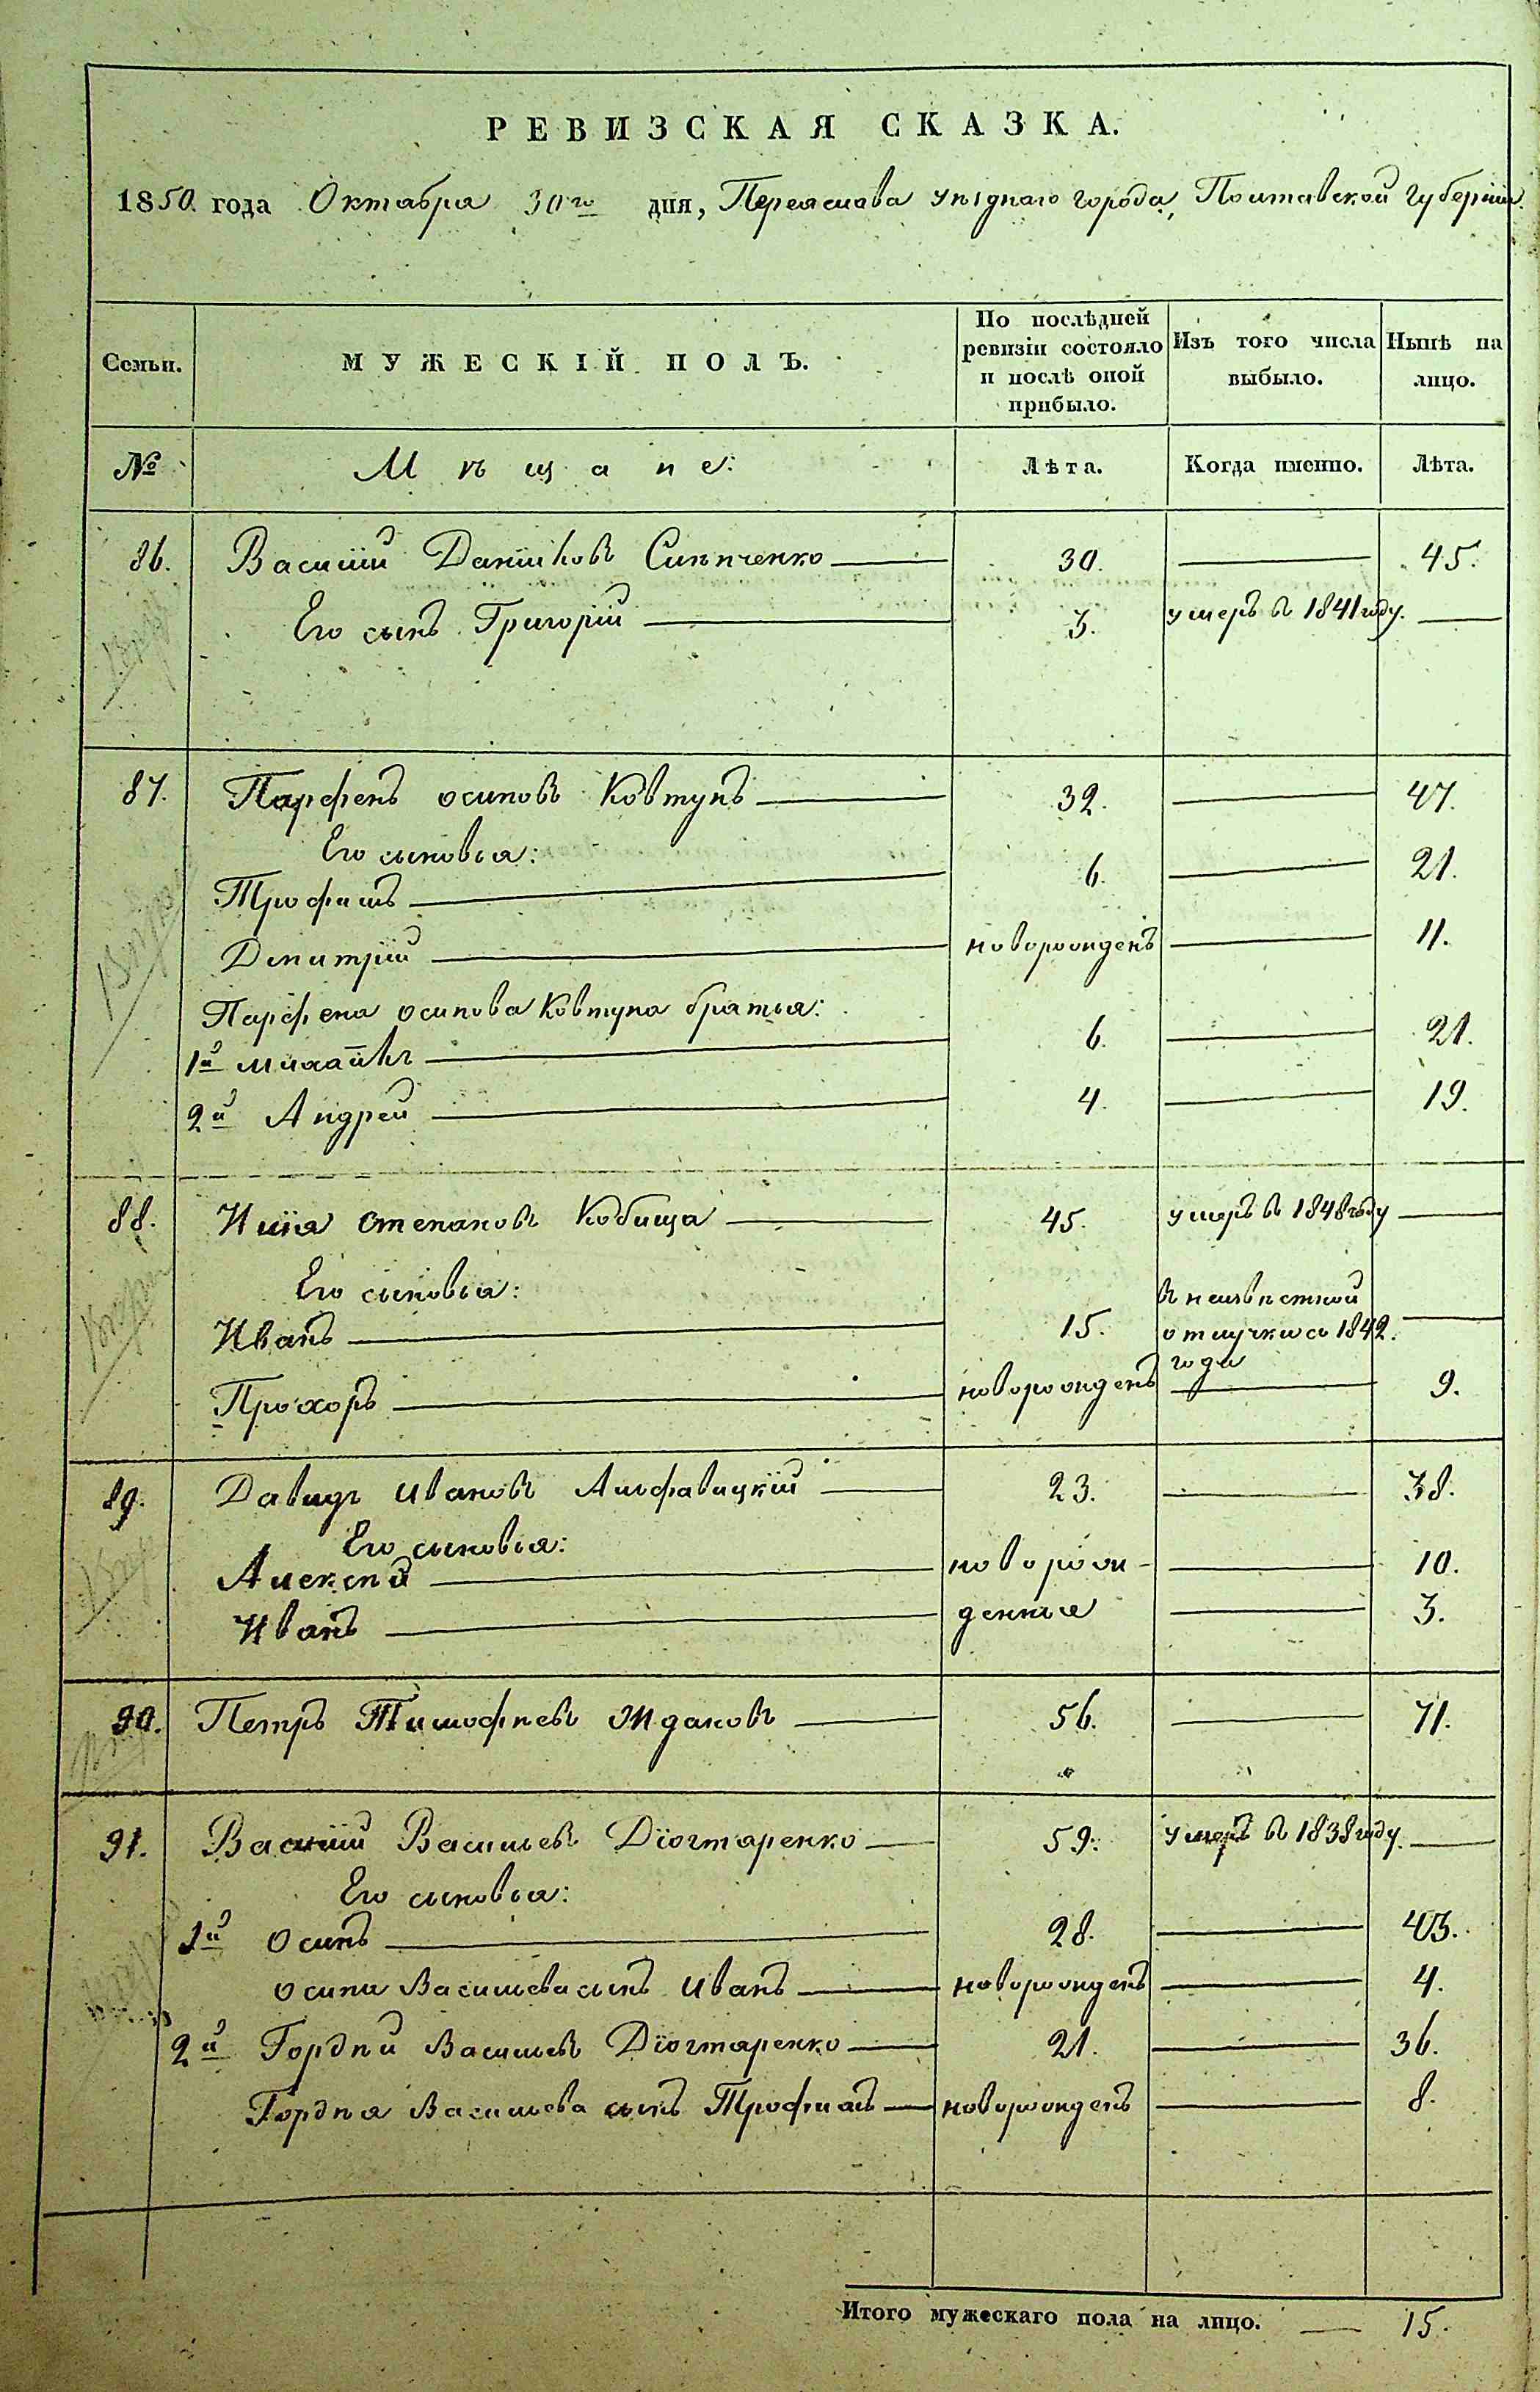 РЕВИЗСКАЯ СКАЗКА.
1850 года Октабра 30го дня, Переяслава уѣзднаго города, Полтавской Губерніи.
Семьи. МУЖЕСКІЙ ПОЛЪ. По послѣдней ревизіи состояло и послѣ оной прибыло. Изъ того числа выбыло. Нынѣ на лицо.
№ Мѣщане: Лѣта. Когда именно. Лѣта.
86. Василій Даниловъ Сипченко 30. 45.
Его сынъ Григорій 3. умеръ въ 1841 году.
87. Парфенъ осиповъ Ковтунъ 32. 47.
Его сыновья:
Трофимъ 6. 21.
Дмитрій новорожденъ 11.
Парфена осипова Ковтуна братья:
1й михайлъ 6. 21.
2й Андрей 4. 19.
88. Илія степановъ Кобища 45. умеръ въ 1848 году
Его сыновья:
Иванъ 15. въ неизвѣстной отлучки съ 1842. года
Прохоръ новорожденъ 9.
89. Давидъ ивановъ Альфавицкій 23. 38.
Его сыновья:
Алексѣй новорож- 10.
Иванъ денные 3.
90. Петръ Тимофѣевъ Ждановъ 56. 71.
91. Василій Васильевъ Діогтаренко 59. умеръ въ 1838 году.
Его сыновья:
1й осипъ 28. 43.
осипа Васильева сынъ иванъ новорожденъ 4.
2й Гордѣй Васильевъ Діогтаренко 21. 36.
Гордѣя Васильева сынъ Трофимъ новорожденъ 8.
Итого мужескаго пола на лицо. 15.